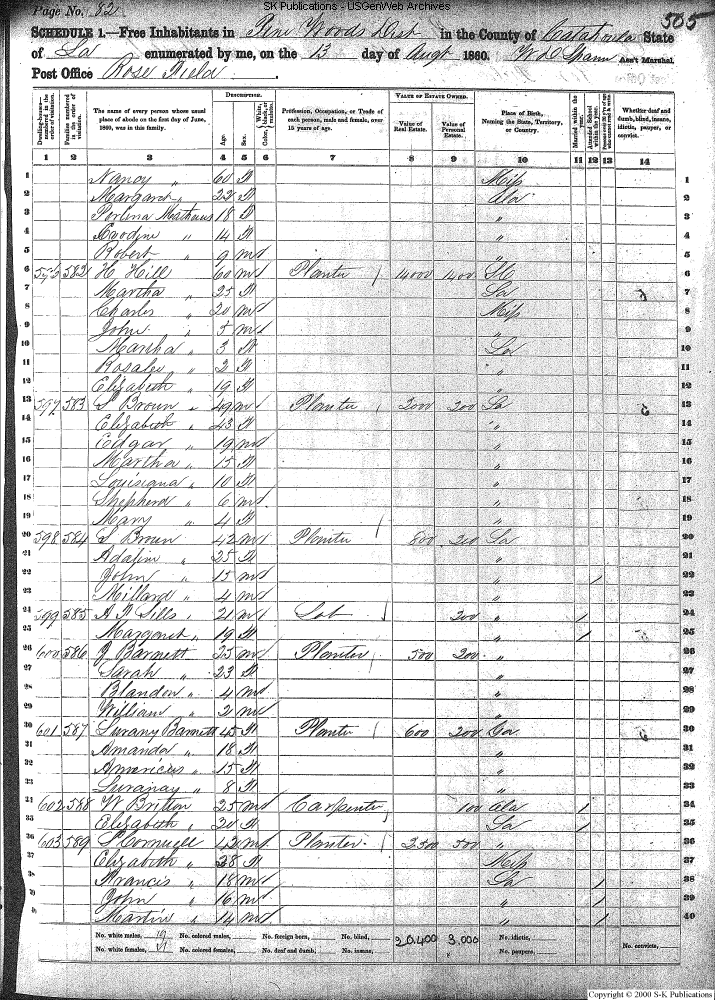 SK Publications - USGenWeb Archives
Page No. 82
505
SCHEDULE 1.—Free Inhabitants in Pine Woods Dist in the County of Catahoula State
of La enumerated by me, on the 13 day of Augt 1860. Ass't Marshal.
Post Office Rose Field.
Dwelling-houses—numbered in the order of visitation.
Families numbered in the order of visitation.
The name of every person whose usual place of abode on the first day of June, 1860, was in this family.
DESCRIPTION.
Age.
Sex.
Color, White, black, or mulatto.
Profession, Occupation, or Trade of each person, male and female, over 15 years of age.
VALUE OF ESTATE OWNED.
Value of Real Estate.
Value of Personal Estate.
Place of Birth, Naming the State, Territory, or Country.
Married within the year.
Attended School within the year.
Whether deaf and dumb, blind, insane, idiotic, pauper, or convict.
1 2 3 4 5 6 7 8 9 10 11 12 13 14
1 Nancy " 60 Miss 1
2 Margaret " 22 Ala 2
3 Mathews 18 " 3
4 " 14 " 4
5 Robert " 9 m " 5
6 582 H Hill 60 m Planter 14000 1400 6
7 Martha " 25 La 7
8 Charles " 20 m Miss 8
9 John " 5 m " 9
10 Martha " 3 La 10
11 Rosalie " 2 " 11
12 Elizabeth " 19 " 12
13 597 583 S Brown 49 m Planter 2000 200 La 13
14 Elizabeth " 43 " 14
15 Edgar " 19 m " 15
16 Martha " 15 " 16
17 Louisiana " 10 " 17
18 Shepherd " 6 m " 18
19 Mary " 4 " 19
20 598 584 S Brown 42 m Planter 800 200 La 20
21 Adaline " 25 " 21
22 John " 15 m " / 22
23 Millard " 4 m " 23
24 599 585 Sills 21 m Lab 200 " / 24
25 Margaret " 19 " / 25
26 600 586 J Barnett 25 m Planter 500 200 " 26
27 Sarah " 23 " 27
28 Blandon " 4 m " 28
29 William " 2 m " 29
30 601 587 Surany Barnett 45 Planter 600 200 30
31 Amanda " 18 " 31
32 Americus " 15 " 32
33 Suranay " 8 " 33
34 602 588 W Britton 25 m Carpenter 100 Ala / 34
35 Elizabeth " 20 La / 35
36 603 589 Cornwell 42 m Planter 2500 500 " 36
37 Elizabeth " 28 Miss 37
38 Francis " 18 m La / 38
39 John " 16 m " / 39
40 Martin " 14 m " / 40
No. white males, 19 No. colored males, No. foreign born, No. blind, 20,400 3,000 No. idiotic, No. convicts,
No. white females, 21 No. colored females, No. deaf and dumb, No. insane, No. paupers,
Copyright © 2000 S-K Publications